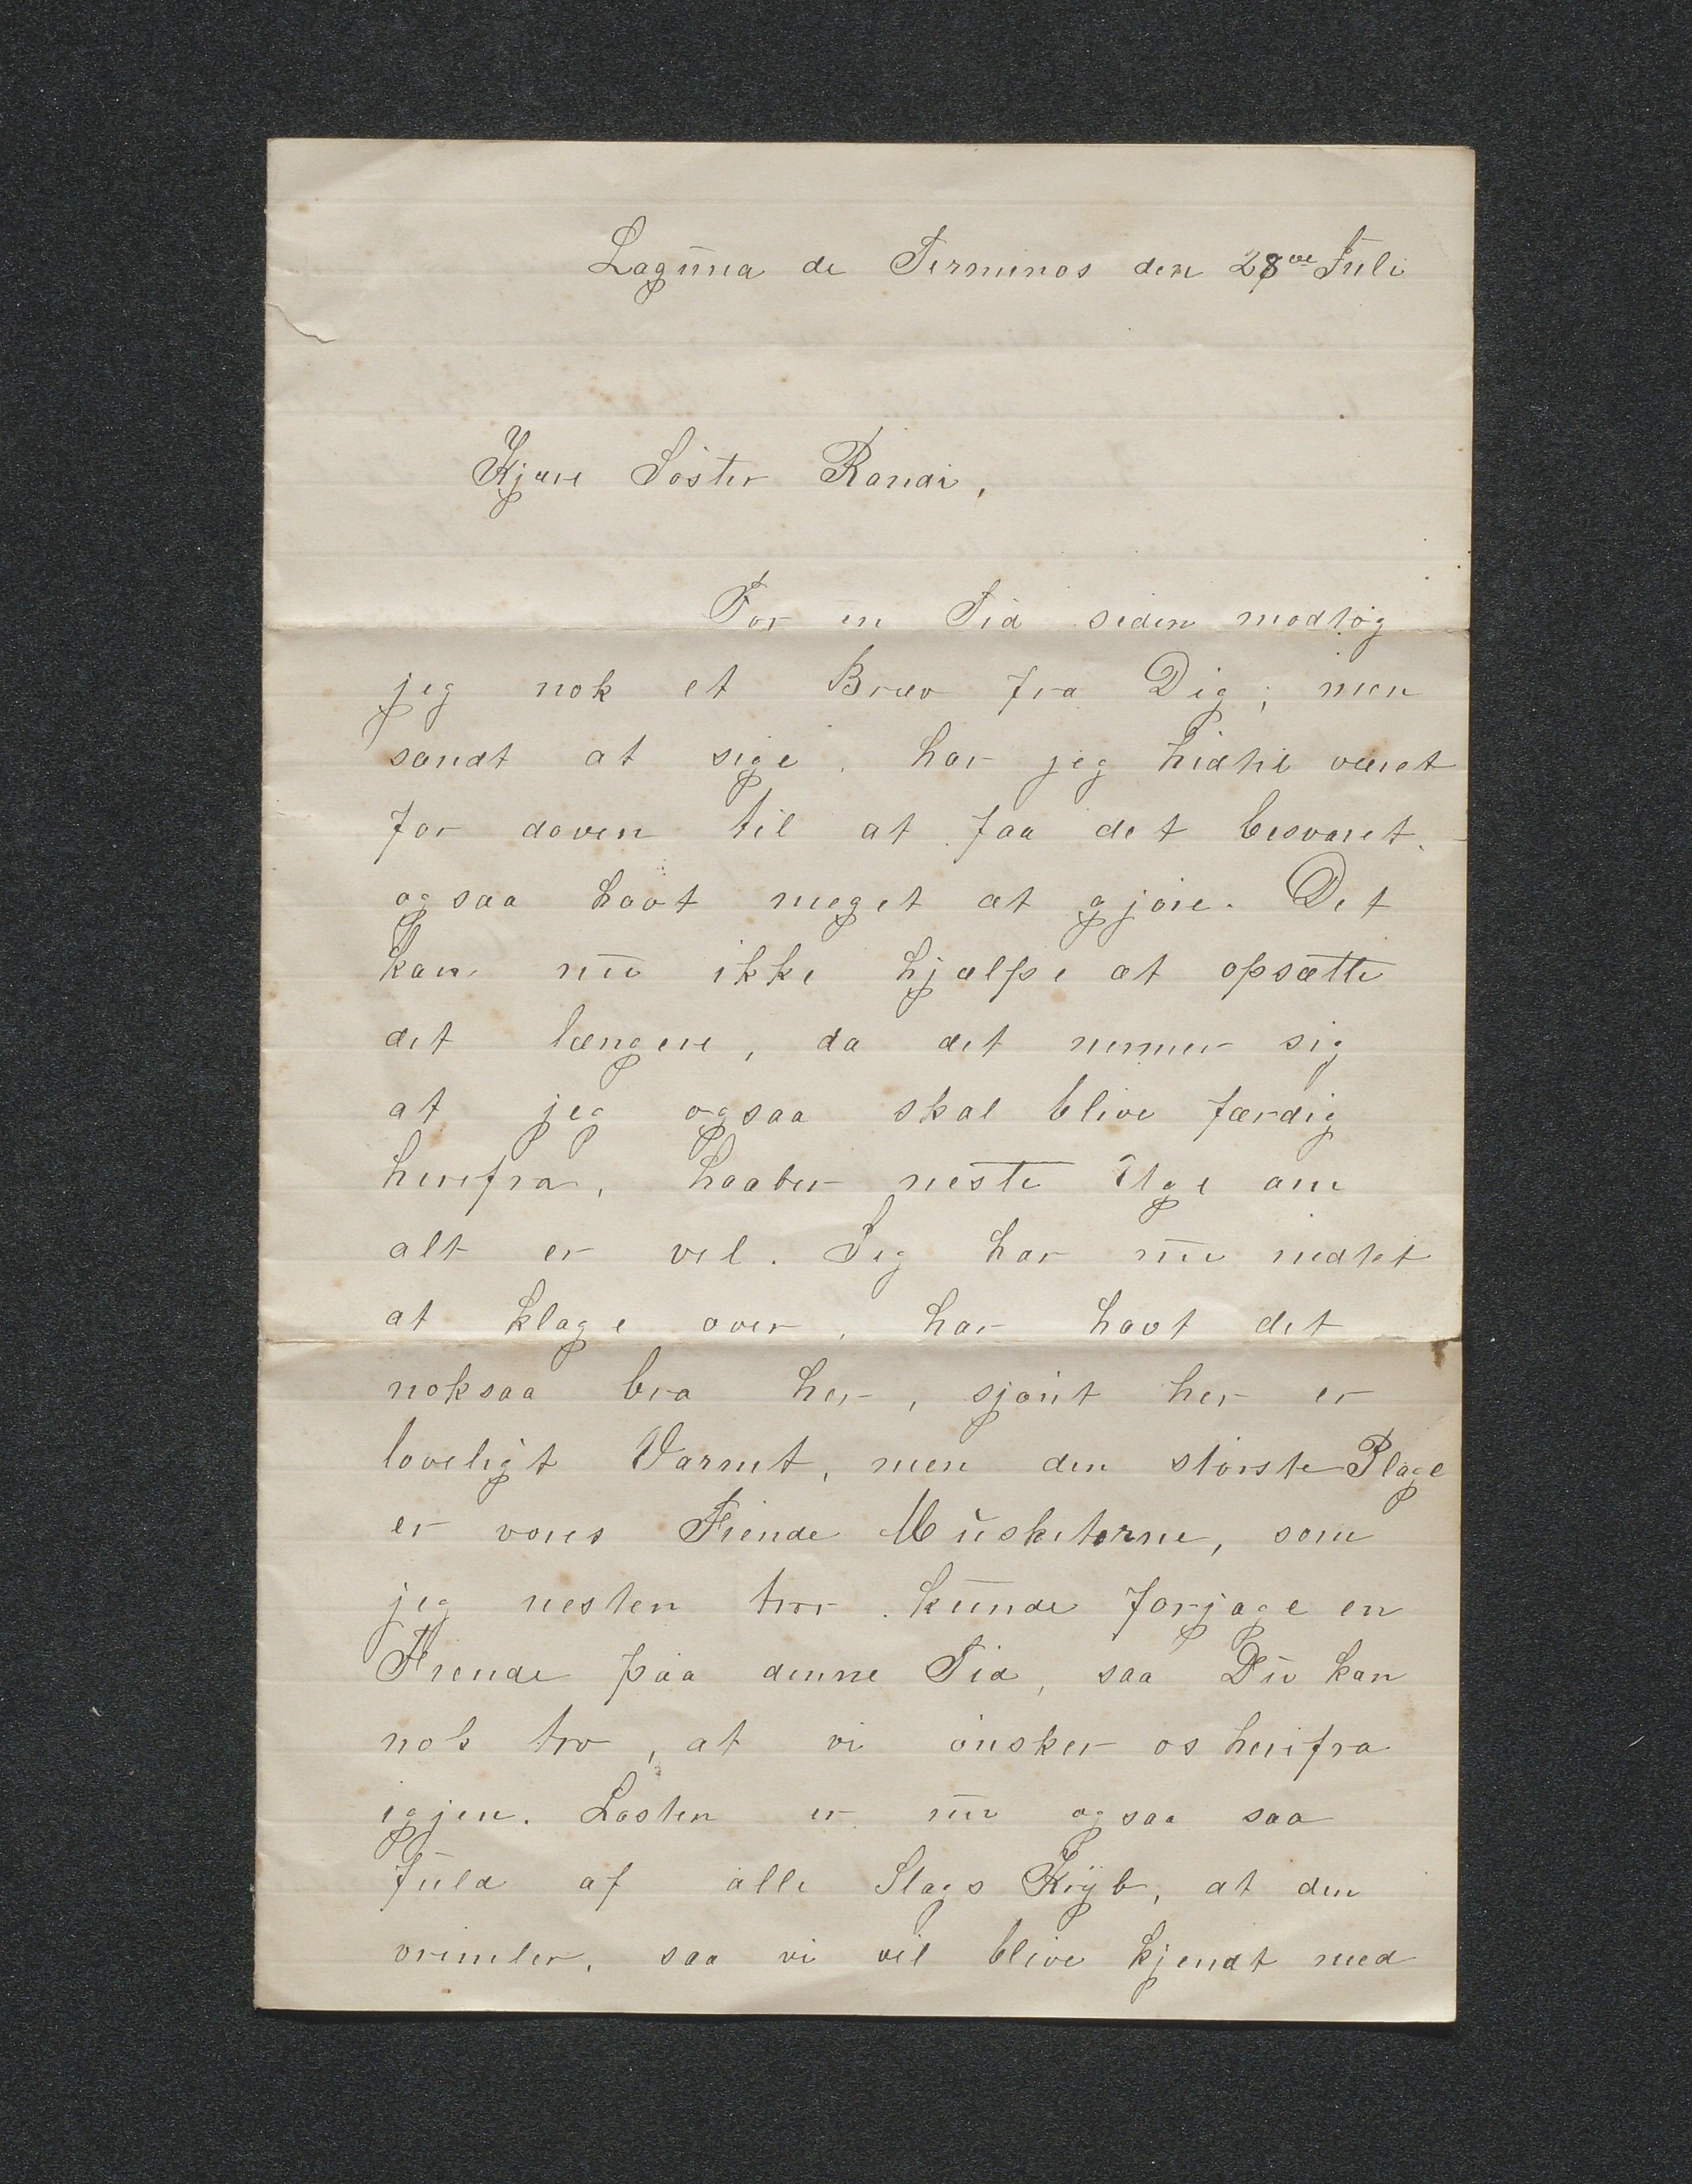 Laguna de Terminos den 28de Juli
Kjære Søster Randi,
For en Tid siden modtog
jeg nok et Brev fra Dig; men
sandt at sige, har jeg hidtil været
for doven til at faa det besvaret,
ogsaa havt meget at gjøre. Det
kan nu ikke hjælpe at opsætte
det længere, da det nermer sig
at jeg ogsaa skal blive færdig
herifra, haaber neste Uge om
alt er vel. Jeg har nu indtet
at klage over, har havt det
noksaa bra her, sjønt her er
loveligt Varmt, men den største Plage
er vores Fiende Muskitorne, som
jeg nesten tror kunde forjage en
Fiende paa denne Tid, saa Du kan
nok tro, at vi ønsker os herifra
igjen. Lasten er nu ogsaa saa
fuld af alle Slags Kryb, at den
vrimler, saa vi vil blive kjendt med